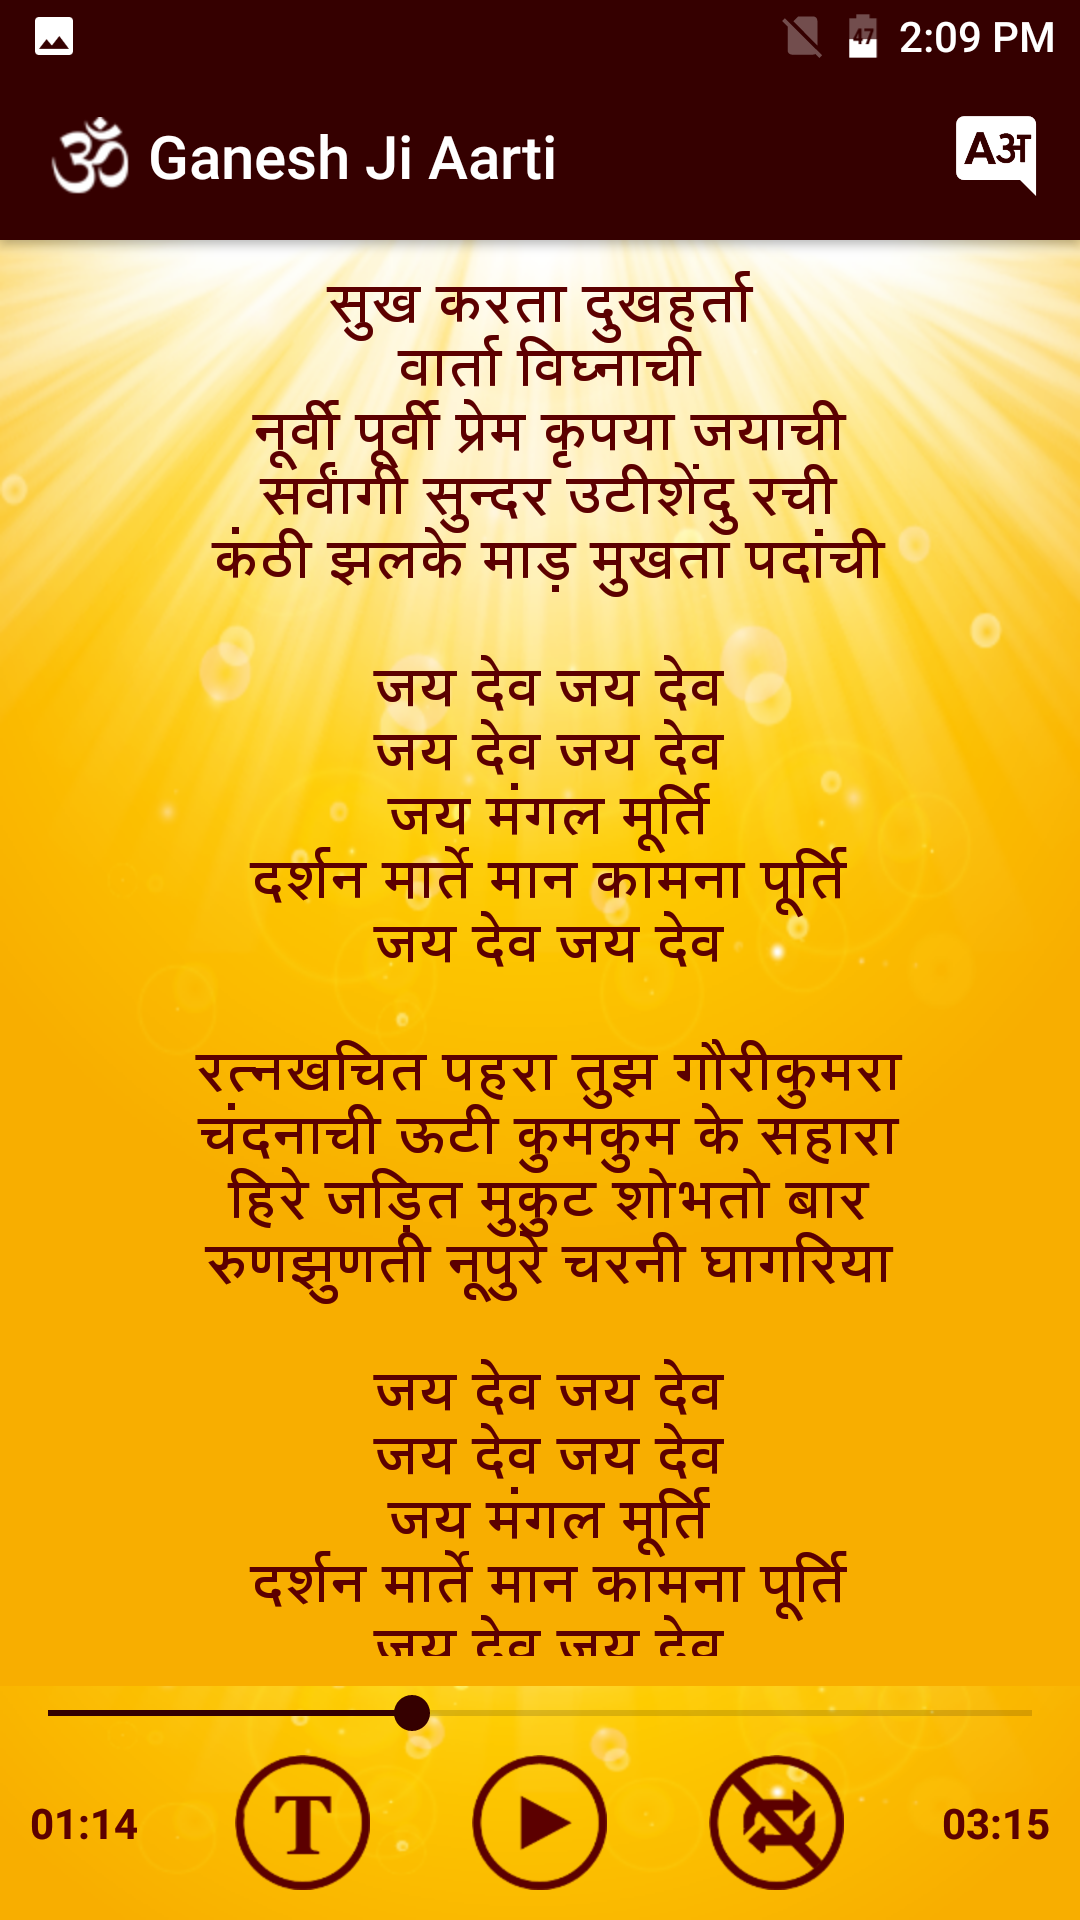 47 2:09 PM
ॐ Ganesh Ji Aarti Aअ
सुख करता दुखहर्ता
वार्ता विघ्नाची
नूर्वी पूर्वी प्रेम कृपया जयाची
सर्वांगी सुन्दर उटीशेंदु रची
कंठी झलके माड़ मुखता पदांची
जय देव जय देव
जय देव जय देव
जय मंगल मूर्ति
दर्शन मार्ते मान कामना पूर्ति
जय देव जय देव
रत्नखचित पहरा तुझ गौरीकुमरा
चंदनाची ऊटी कुमकुम के सहारा
हिरे जड़ित मुकुट शोभतो बार
रुणझुणती नूपुरे चरनी घागरिया
जय देव जय देव
जय देव जय देव
जय मंगल मूर्ति
दर्शन मार्ते मान कामना पूर्ति
जय देव जय देव
01:14 T 03:15